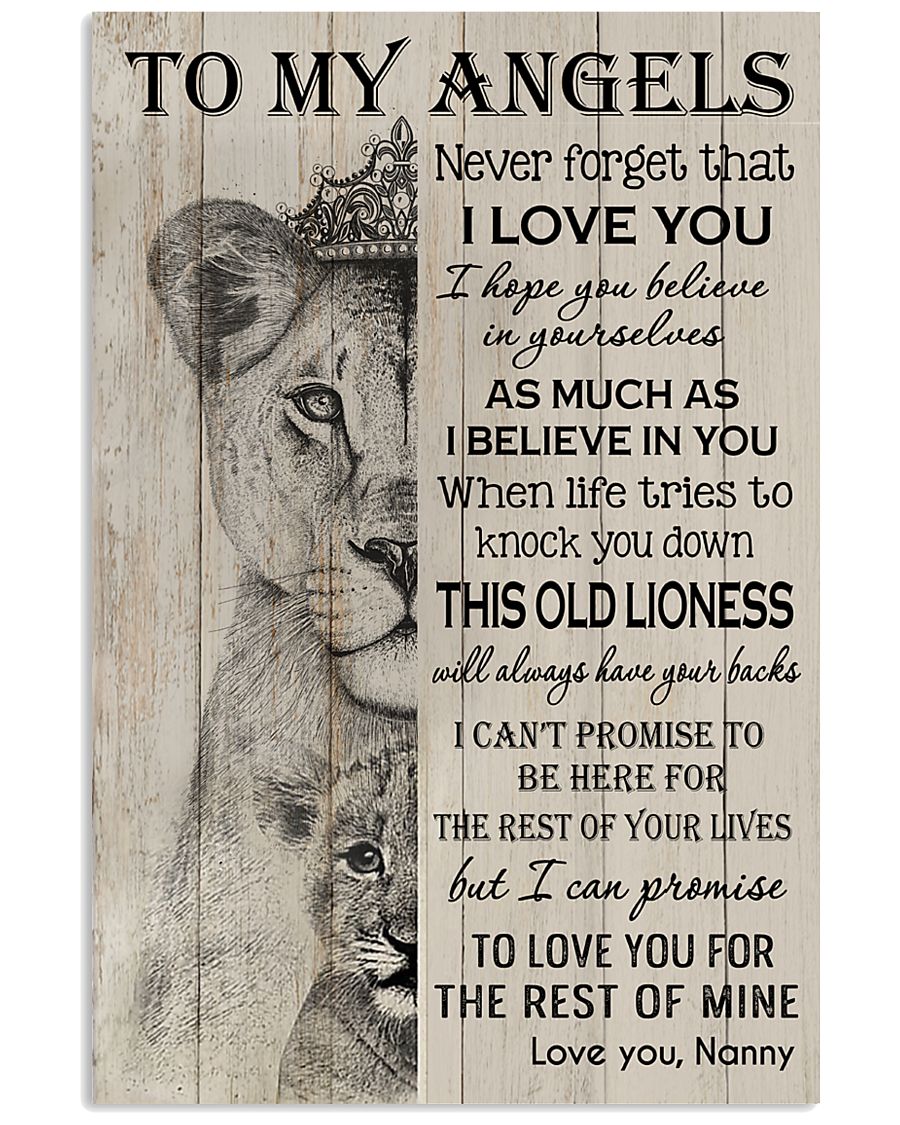 TO MY ANGELS
Never forget that
I LOVE YOU
I hope you believe
in yourselves
AS MUCH AS
I BELIEVE IN YOU
When life tries to
knock you down
THIS OLD LIONESS
will always have your backs
I CAN'T PROMISE TO
BE HERE FOR
THE REST OF YOUR LIVES
but I can promise
TO LOVE YOU FOR
THE REST OF MINE
Love you, Nanny